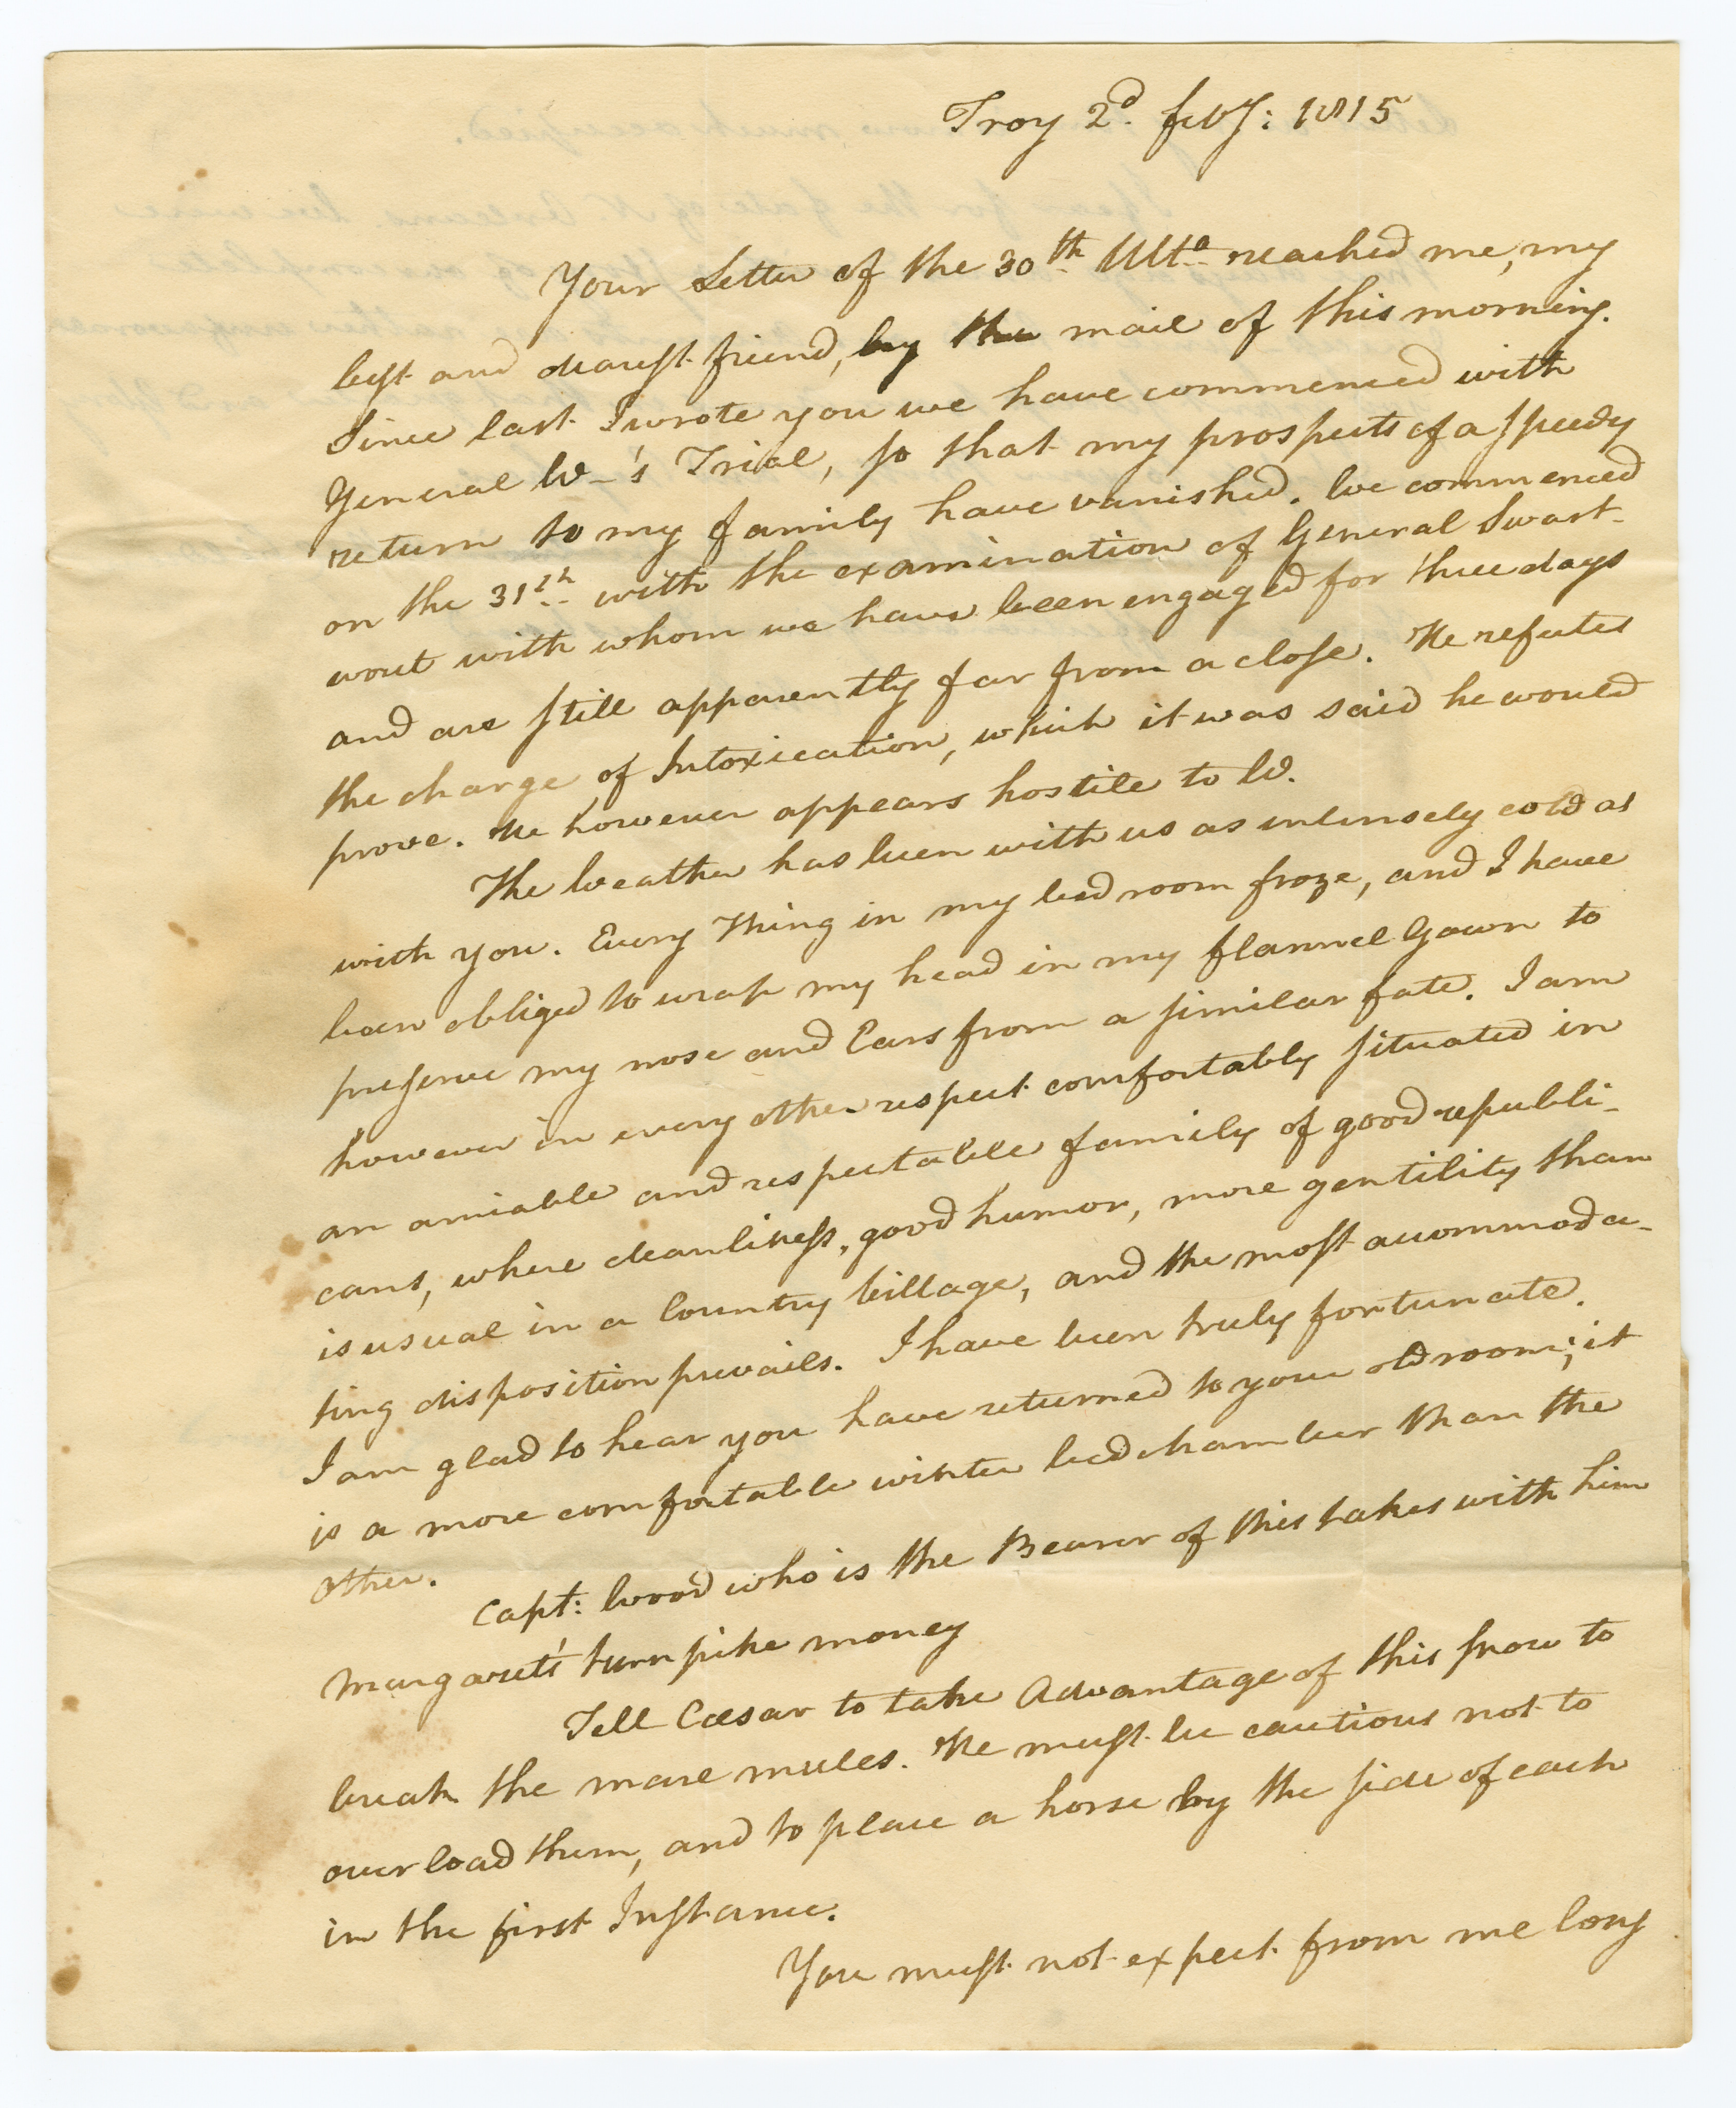 Troy 2d. feby: 1815
Your Letter of the 30th Ulto reached me, my
best and dearest friend, by the mail of this morning.
Since last I wrote you we have commenced with
General W—'s Trial, so that my prospects of a speedy
return to my family have vanished. We commenced
on the 31st with the examination of General Swart-
wout with whom we have been engaged for three days
and are still apparently far from a close. He refutes
the charge of Intoxication, which it was said he would
prove. He however appears hostile to W.
The Weather has been with us as intensely cold as
with you. Every Thing in my bed room froze, and I have
been obliged to wrap my head in my flannel Gown to
preserve my nose and Ears from a similar fate. I am
however in every other respect comfortably situated in
an amiable and respectable family of good republi-
cans, where cleanliness, good humor, more gentility than
is usual in a Country Village, and the most accommoda-
ting disposition prevails. I have been truly fortunate.
I am glad to hear you have returned to your old room; it
is a more comfortable winter bed chamber than the
other.
Capt: Wood who is the Bearer of this takes with him
Margaret's turnpike money
Tell Cæsar to take Advantage of this snow to
break the mare mules. He must be cautious not to
over load them, and to place a horse by the side of each
in the first Instance.
You must not expect from me long